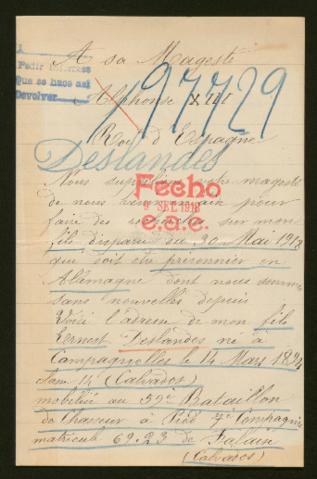 A sa Magesté
Pedir
Que se hace asi
Devolver
Alphonse XIII
97729
Roi d'Espagne
Deslandes
Nous suplions votre magesté
Fecho
9 SEt. 1918
e.a.e.
de nous pour
faire des recherches sur mon
fils disparu au 30 Mai 1918
que doit etre prisonnier en
Allemagne dont nous sommes
sans nouvelles depuis
Voici l'adresse de mon fils
Ernest Deslandes né à
Campagnolles le 14 Mars 1894
classe 14 (Calvados)
mobilisé au 59e Bataillon
de Chasseur à Pied 7e Compagnie
matricul 6923 de Falaise
(Calvados)